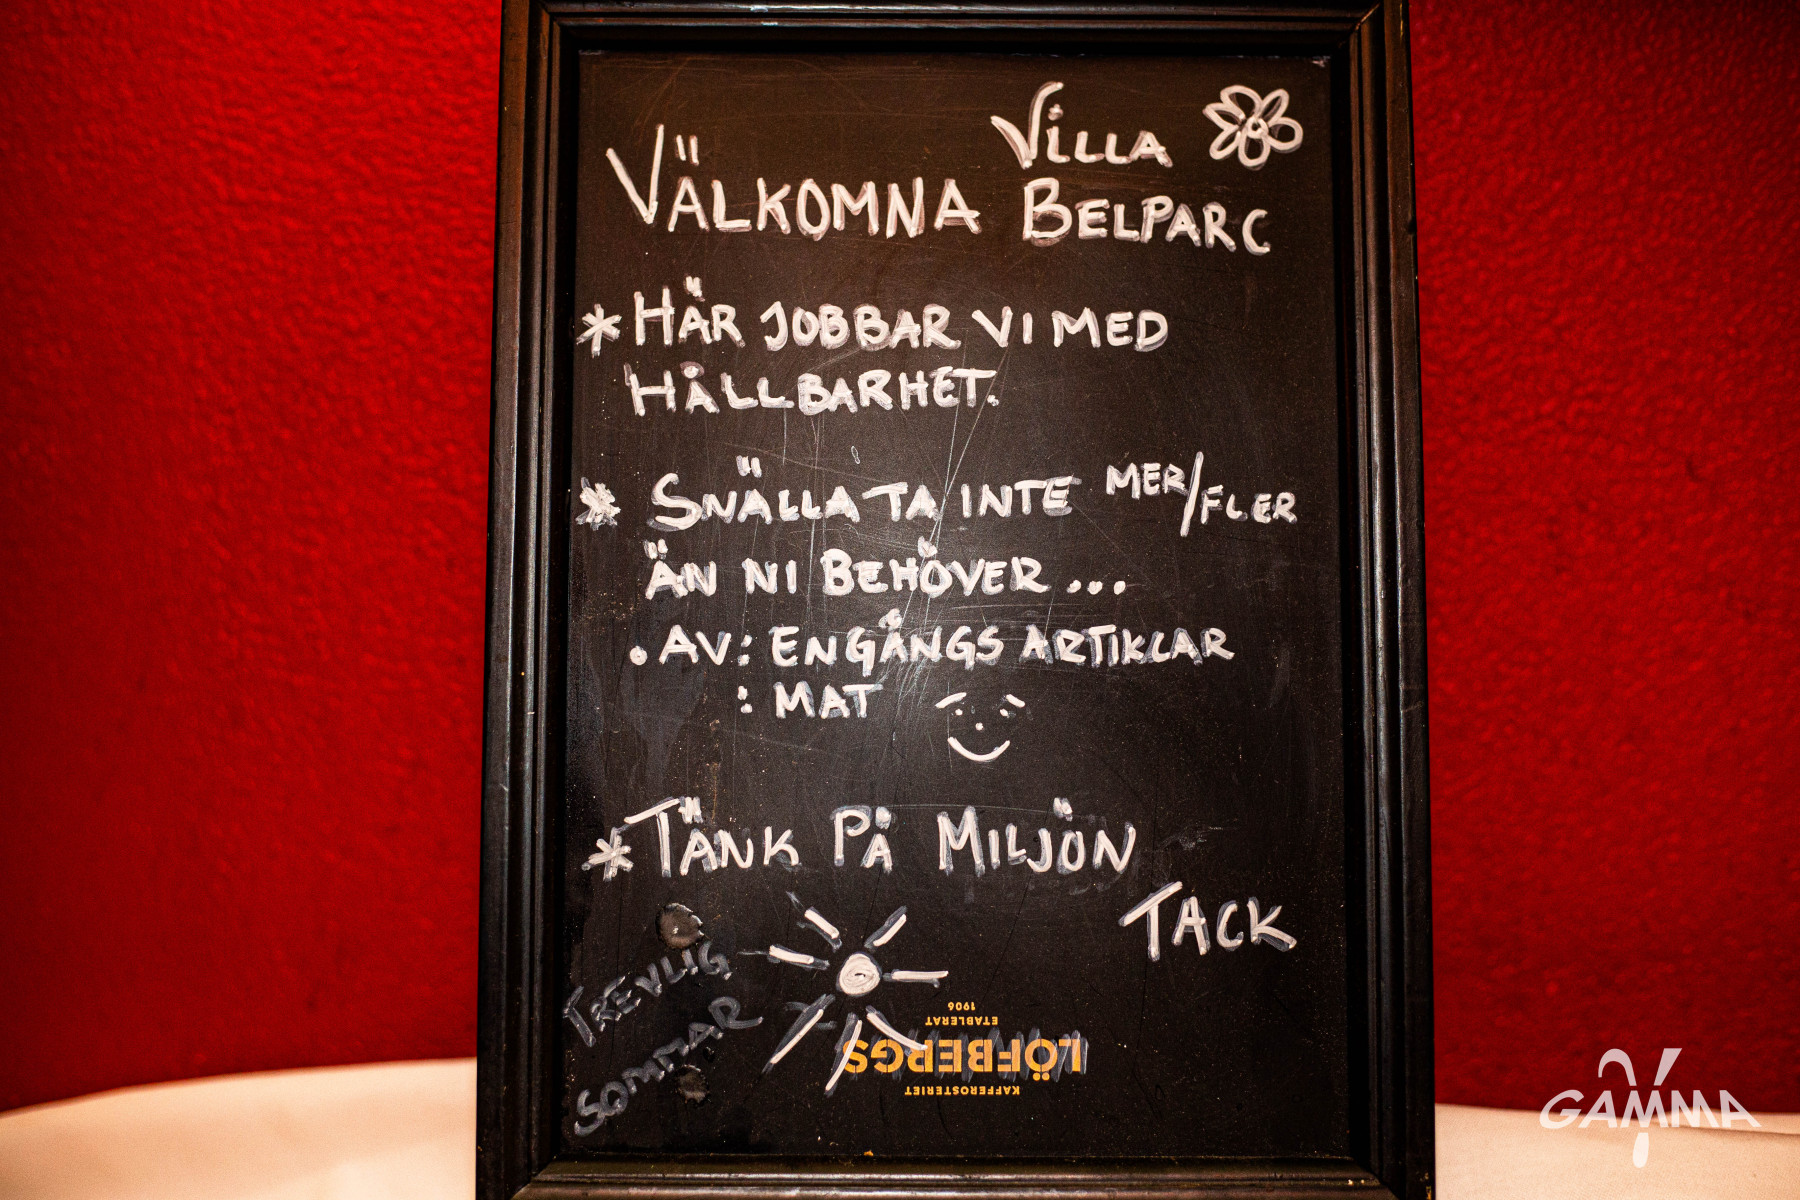 VILLA
VÄLKOMNA BELPARC
* HÄR JOBBAR VI MED
HÅLLBARHET.
* SNÄLLA TA INTE MER/FLER
ÄN NI BEHÖVER...
• AV: ENGÅNGS ARTIKLAR
: MAT
* TÄNK PÅ MILJÖN
TACK
TREVLIG
SOMMAR
KAFFEROSTERIET
LÖFBERGS
ETABLERAT
1906
GAMMA